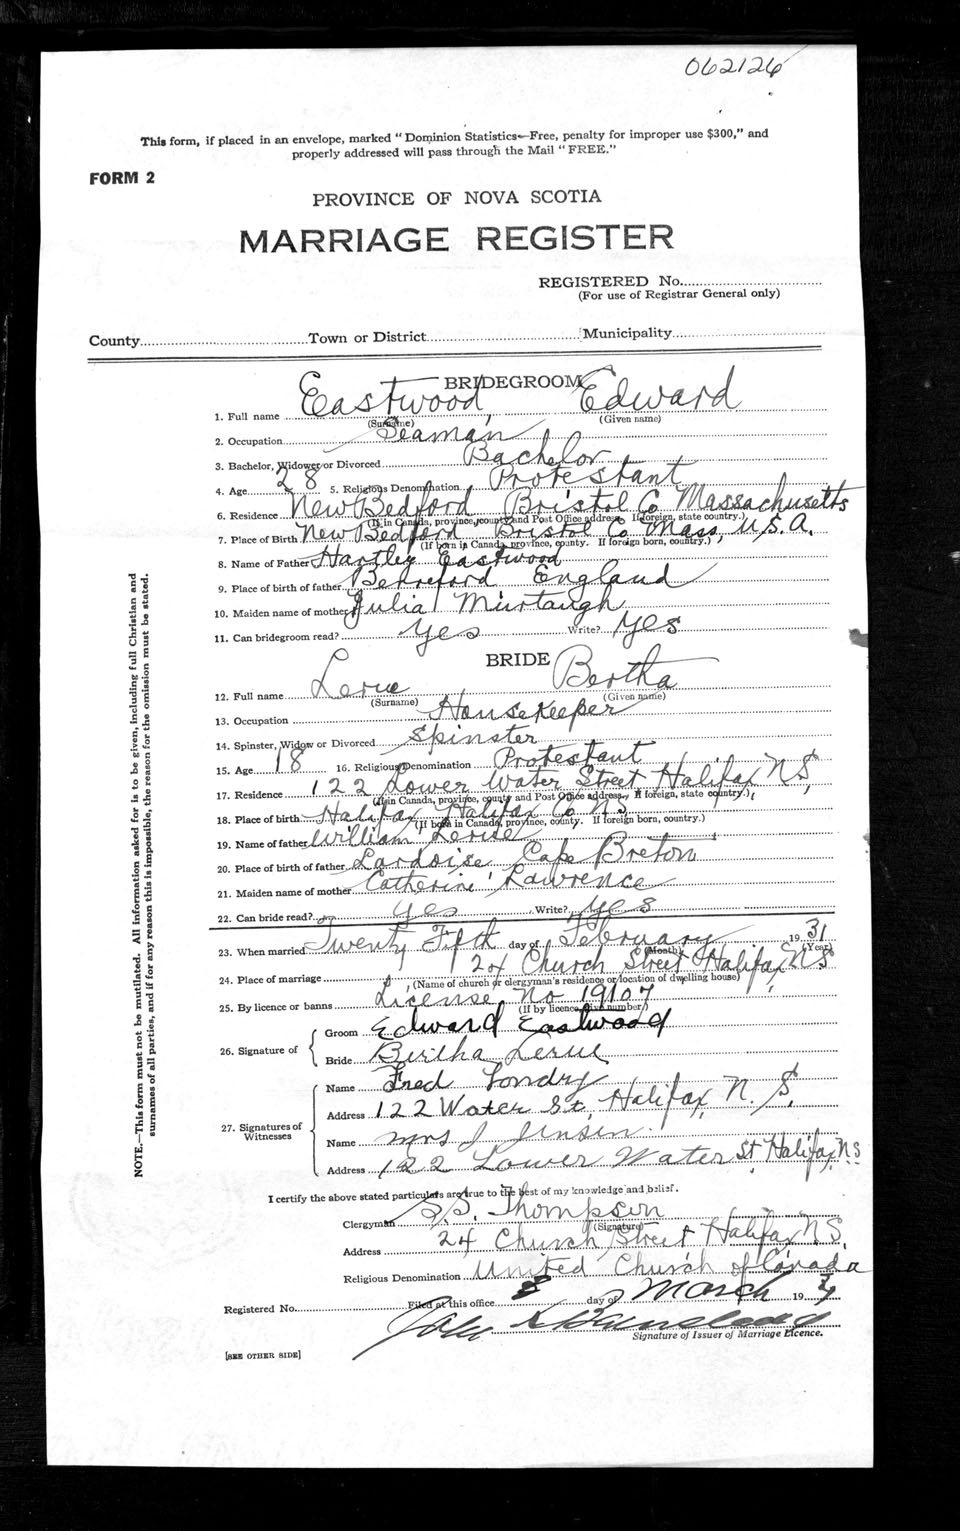 062126
This form, if placed in an envelope, marked "Dominion Statistics—Free, penalty for improper use $300," and
properly addressed will pass through the Mail "FREE."
FORM 2
PROVINCE OF NOVA SCOTIA
MARRIAGE REGISTER
REGISTERED No.
(For use of Registrar General only)
County Town or District Municipality
BRIDEGROOM
1. Full name Eastwood, Edward
(Surname) (Given name)
2. Occupation Seaman
3. Bachelor, Widower or Divorced Bachelor
4. Age 28 5. Religious Denomination Protestant
6. Residence New Bedford Bristol Co Massachusetts
(If in Canada, province, county and Post Office address. If foreign, state country.)
7. Place of Birth New Bedford Bristol Co Mass, U.S.A.
(If born in Canada, province, county. If foreign born, country.)
8. Name of Father Hartley Eastwood
9. Place of birth of father England
10. Maiden name of mother Julia Murtaugh
11. Can bridegroom read? Yes Write? Yes
BRIDE
12. Full name Lerue Bertha
(Surname) (Given name)
13. Occupation Housekeeper
14. Spinster, Widow or Divorced Spinster
15. Age 18 16. Religious Denomination Protestant
17. Residence 122 Lower Water Street Halifax N S,
(If in Canada, province, county and Post Office address. If foreign, state country.)
18. Place of birth Halifax Halifax Co N.S.
(If born in Canada, province, county. If foreign born, country.)
19. Name of father William Lerue
20. Place of birth of father Lardoise Cape Breton
21. Maiden name of mother Catherine Lawrence
22. Can bride read? Yes Write? Yes
23. When married Twenty Fifth day of February 1931
(Month) (Year)
24. Place of marriage 24 Church Street Halifax, N S
(Name of church or clergyman's residence or location of dwelling house)
25. By licence or banns License No 19107
(If by licence, give number)
26. Signature of
Groom Edward Eastwood
Bride Bertha Lerue
27. Signatures of Witnesses
Name Fred Londry
Address 122 Water St, Halifax, N. S.
Name Mrs J Jensen
Address 122 Lower Water St Halifax, N S
I certify the above stated particulars are true to the best of my knowledge and belief.
Clergyman S. Thompson
(Signature)
Address 24 Church Street Halifax N.S.
Religious Denomination United Church of Canada
Registered No. Filed at this office 3 day of March 19
Signature of Issuer of Marriage Licence.
[SEE OTHER SIDE]
NOTE.—This form must not be mutilated. All information asked for is to be given, including full Christian and
surnames of all parties, and if for any reason this is impossible, the reason for the omission must be stated.